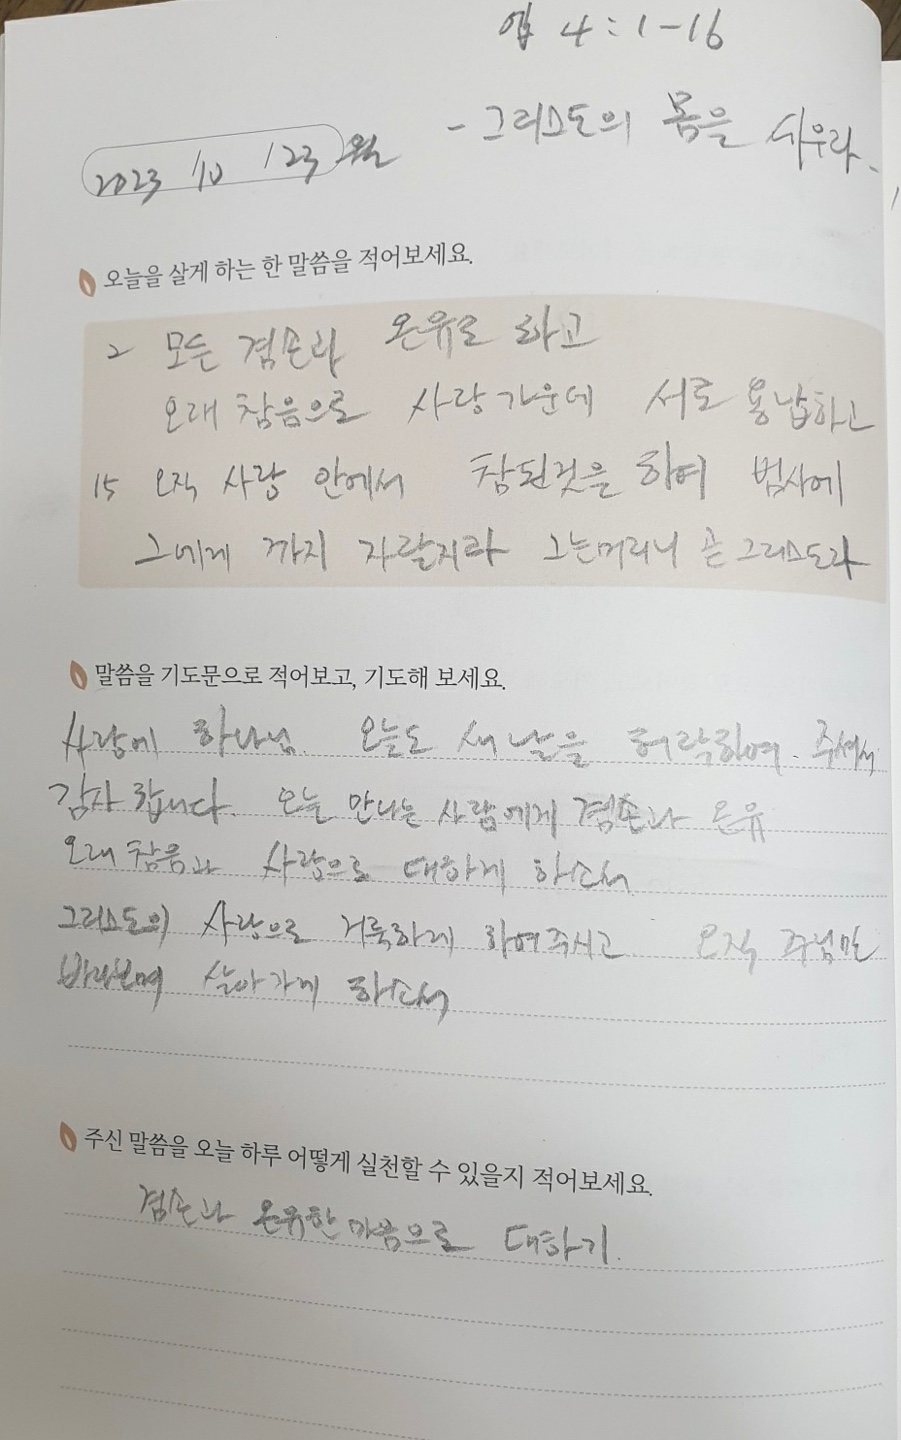 엡 4:1-16
- 그리스도의 몸을 세우라.
2023 /10 /23 월
오늘을 살게 하는 한 말씀을 적어보세요.
2 모든 겸손과 온유로 하고
오래 참음으로 사랑가운데 서로 용납하고
15 오직 사랑 안에서 참된것을 하여 범사에
그에게 까지 자랄지라 그는머리니 곧 그리스도라
말씀을 기도문으로 적어보고, 기도해 보세요.
사랑에 하나님. 오늘도 새날을 허락하여. 주셔서
감사 합니다. 오늘 만나는 사람에게 겸손과 온유
오래 참음과 사랑으로 대하게 하소서
그리스도의 사랑으로 거룩하게 하여주시고 오직 주님만
바라보며 살아가게 하소서
주신 말씀을 오늘 하루 어떻게 실천할 수 있을지 적어보세요.
겸손과 온유한 마음으로 대하기.